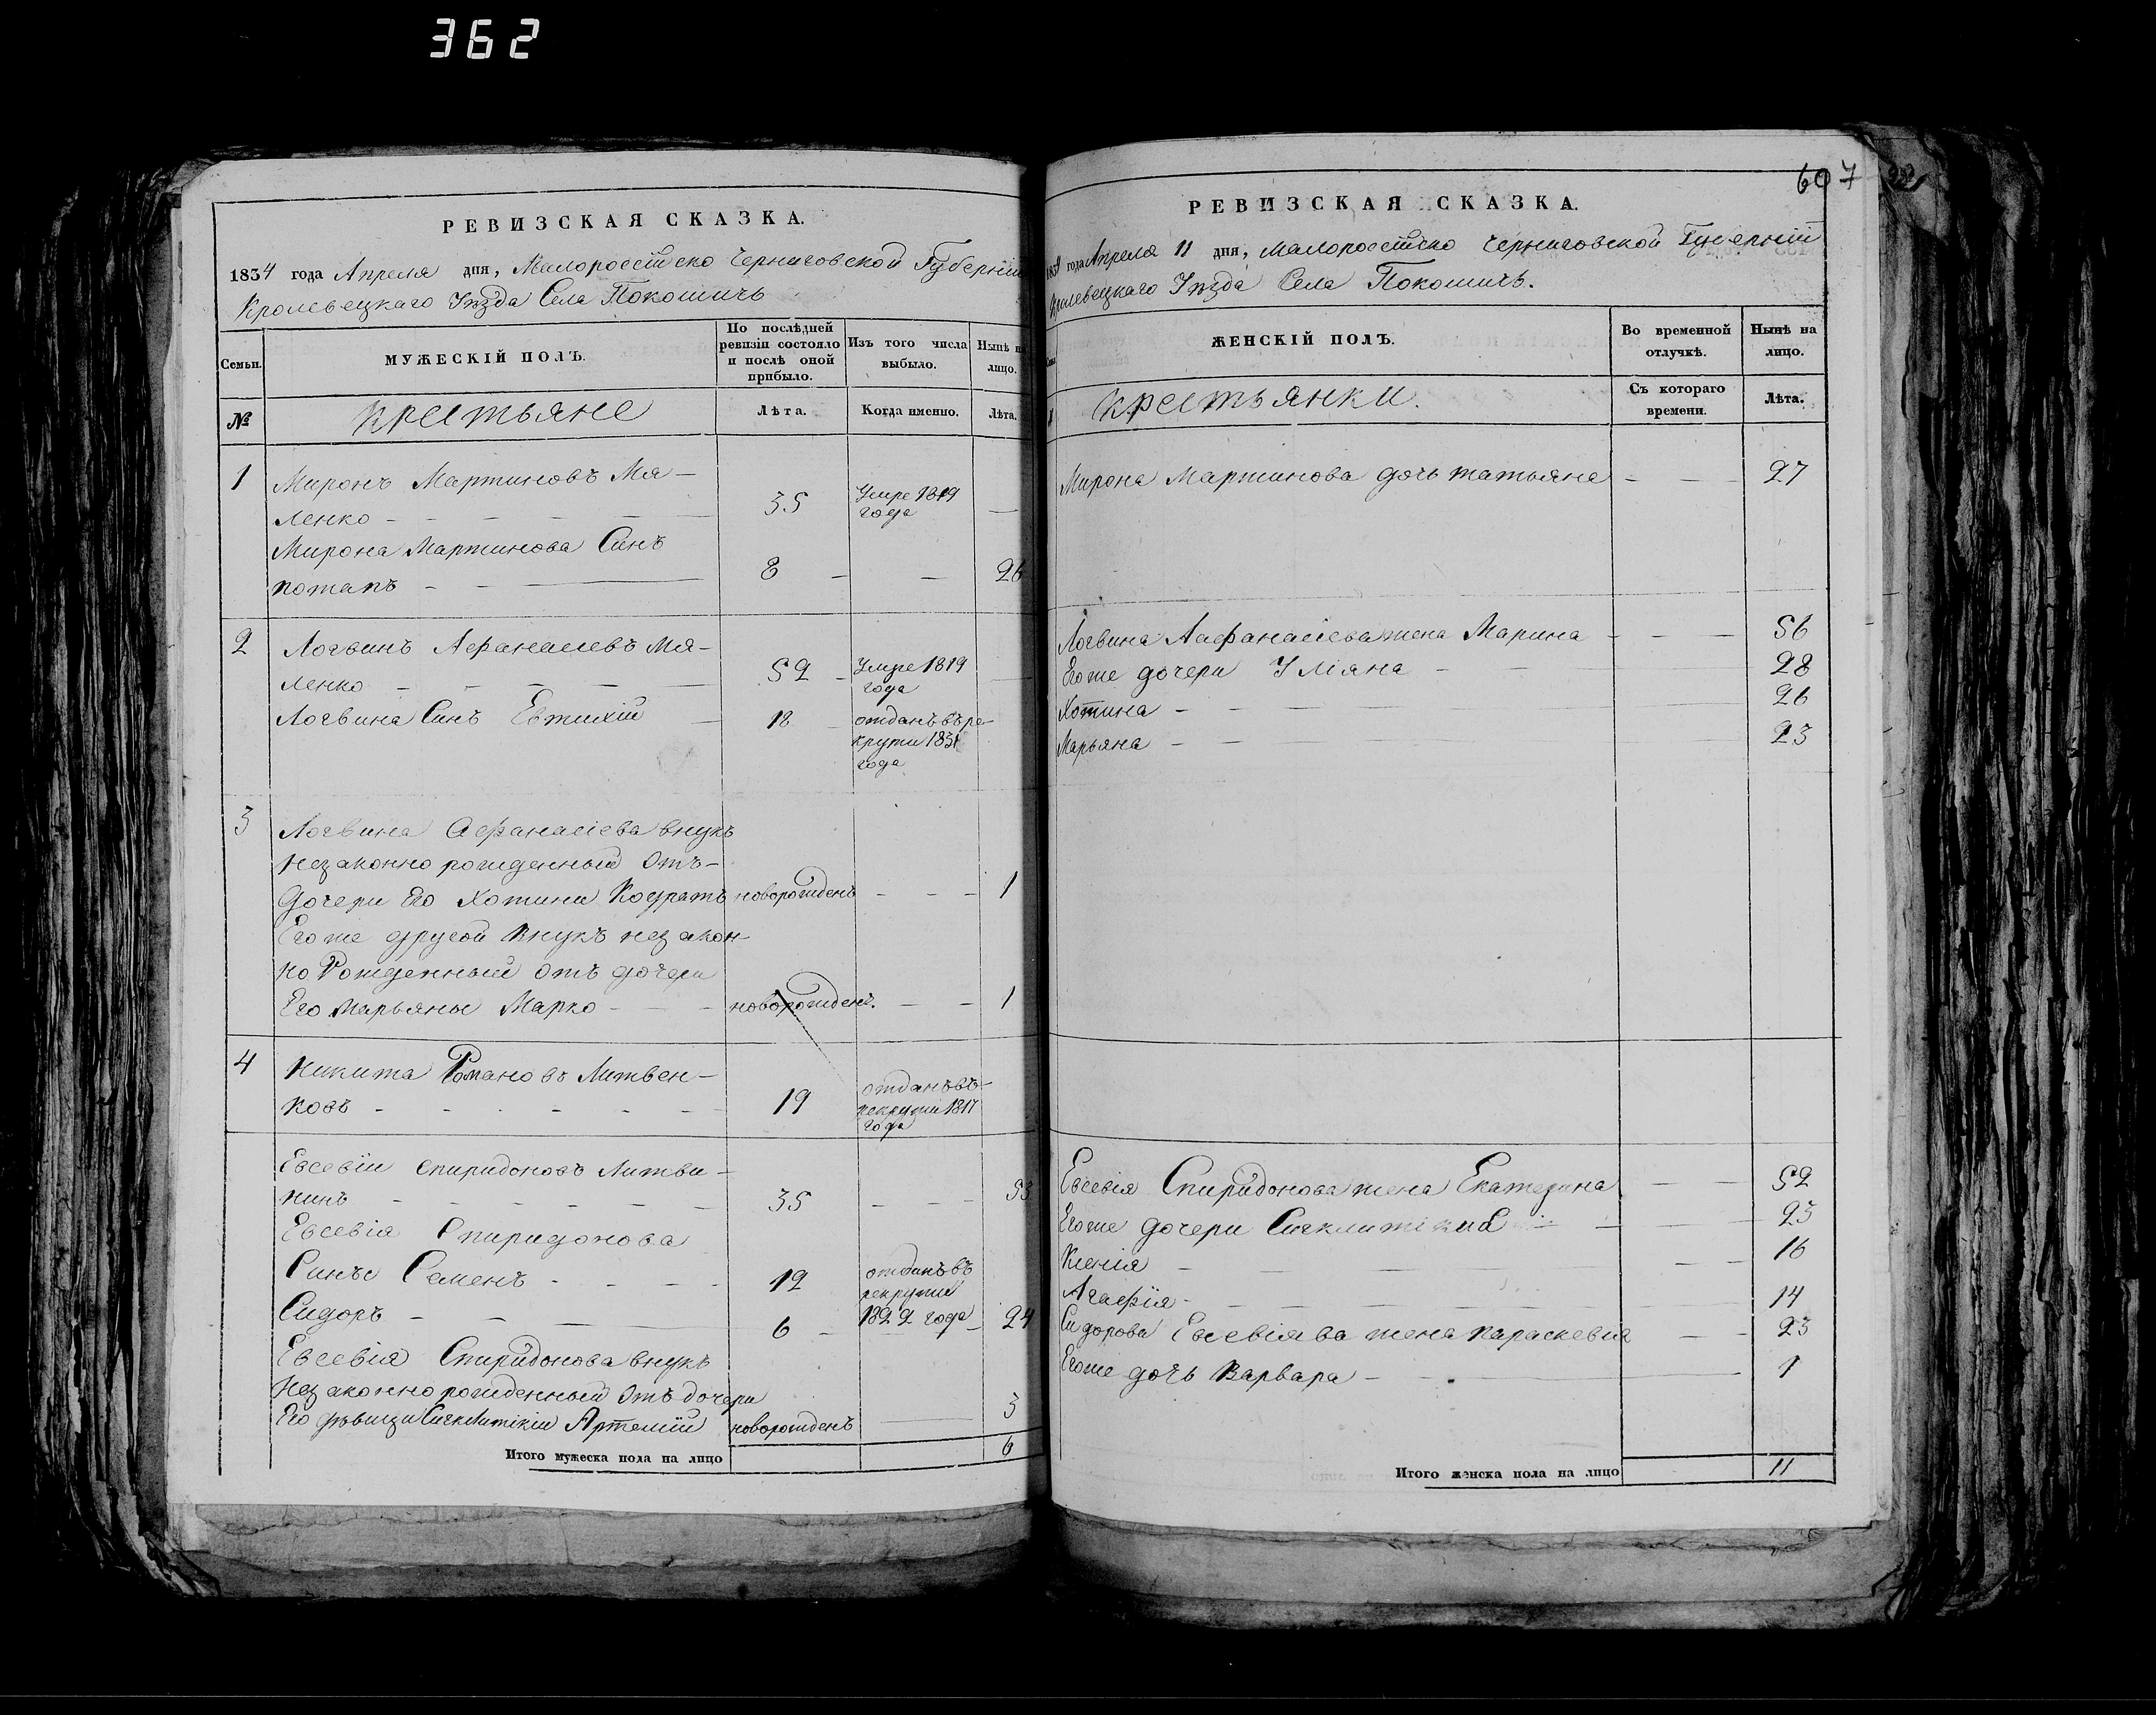 362
РЕВИЗСКАЯ СКАЗКА.
1834 года Апреля дня, Малороссійско Черниговской Губерніи
Кролевецкаго Уѣзда Села Покошичь
Семьи.
МУЖЕСКІЙ ПОЛЪ.
По послѣдней ревизіи состояло и послѣ оной прибыло.
Изъ того числа выбыло.
Нынѣ на лицо.
№
Крестьяне
Лѣта.
Когда именно.
Лѣта.
1 Миронъ Мартиновъ Ма-
ленко - - - 35 Умре 1819 года —
Мирона Мартинова Синъ
потапъ - - 8 - — 26
2 Логвинъ Афанасиевъ Ма-
ленко - - - 52 - Умре 1819 года
Логвина Синъ Евтихій — 18 - отданъ въ ре-
крути 1831
года
3 Логвина Афанасіева внукъ
незаконно рожденный отъ-
дочери Его Хотини Кодратъ новорожденъ - - - 1
Его же другой внукъ незакон-
но Рожденный отъ дочери
Его Марьяны Марко - - - новорожденъ. - - 1
4 Никита Романовъ Литвен-
ковъ - - - - 19 отданъ въ-
рекрути 1817
года
Евсевіи Спиридоновъ Литви-
нинъ - - - - 35 - - - 53
Евсевія Спиридонова
Синъс Семенъ - - - 12 отданъ въ
рекрути
1822 года
Сидоръ - - — 6 - 24
Евсевія Спиридонова внукъ
Незаконно рожденный отъ дочери
Его дѣвици Сигклитікіи Артемій новорожденъ — 3
Итого мужеска пола на лицо 6
607
РЕВИЗСКАЯ СКАЗКА.
1834 года Апреля 11 дня, Малороссійско Черниговской Губерніи
Кролевецкаго Уѣзда Села Покошичь.
ЖЕНСКІЙ ПОЛЪ.
Во временной отлучкѣ.
Нынѣ на лицо.
Крестьянки.
Съ котораго времени.
Лѣта.
Мирона Мартинова дочь татьяна - - - 27
Логвина Аафанасіева жена Марина - - - 56
Егоже дочери Уліяна - — 28
Хотина - - — 26
Марьяна - - — 23
Евсевія Спиридонова жена Екатерина — - 52
Егоже дочери Сигклитікия - — 23
Ксенія - - — 16
Агафія - - — 14
Сидорова Евсевіява жена параскевия — - 23
Егоже дочь Варвара - — 1
Итого женска пола на лицо 11